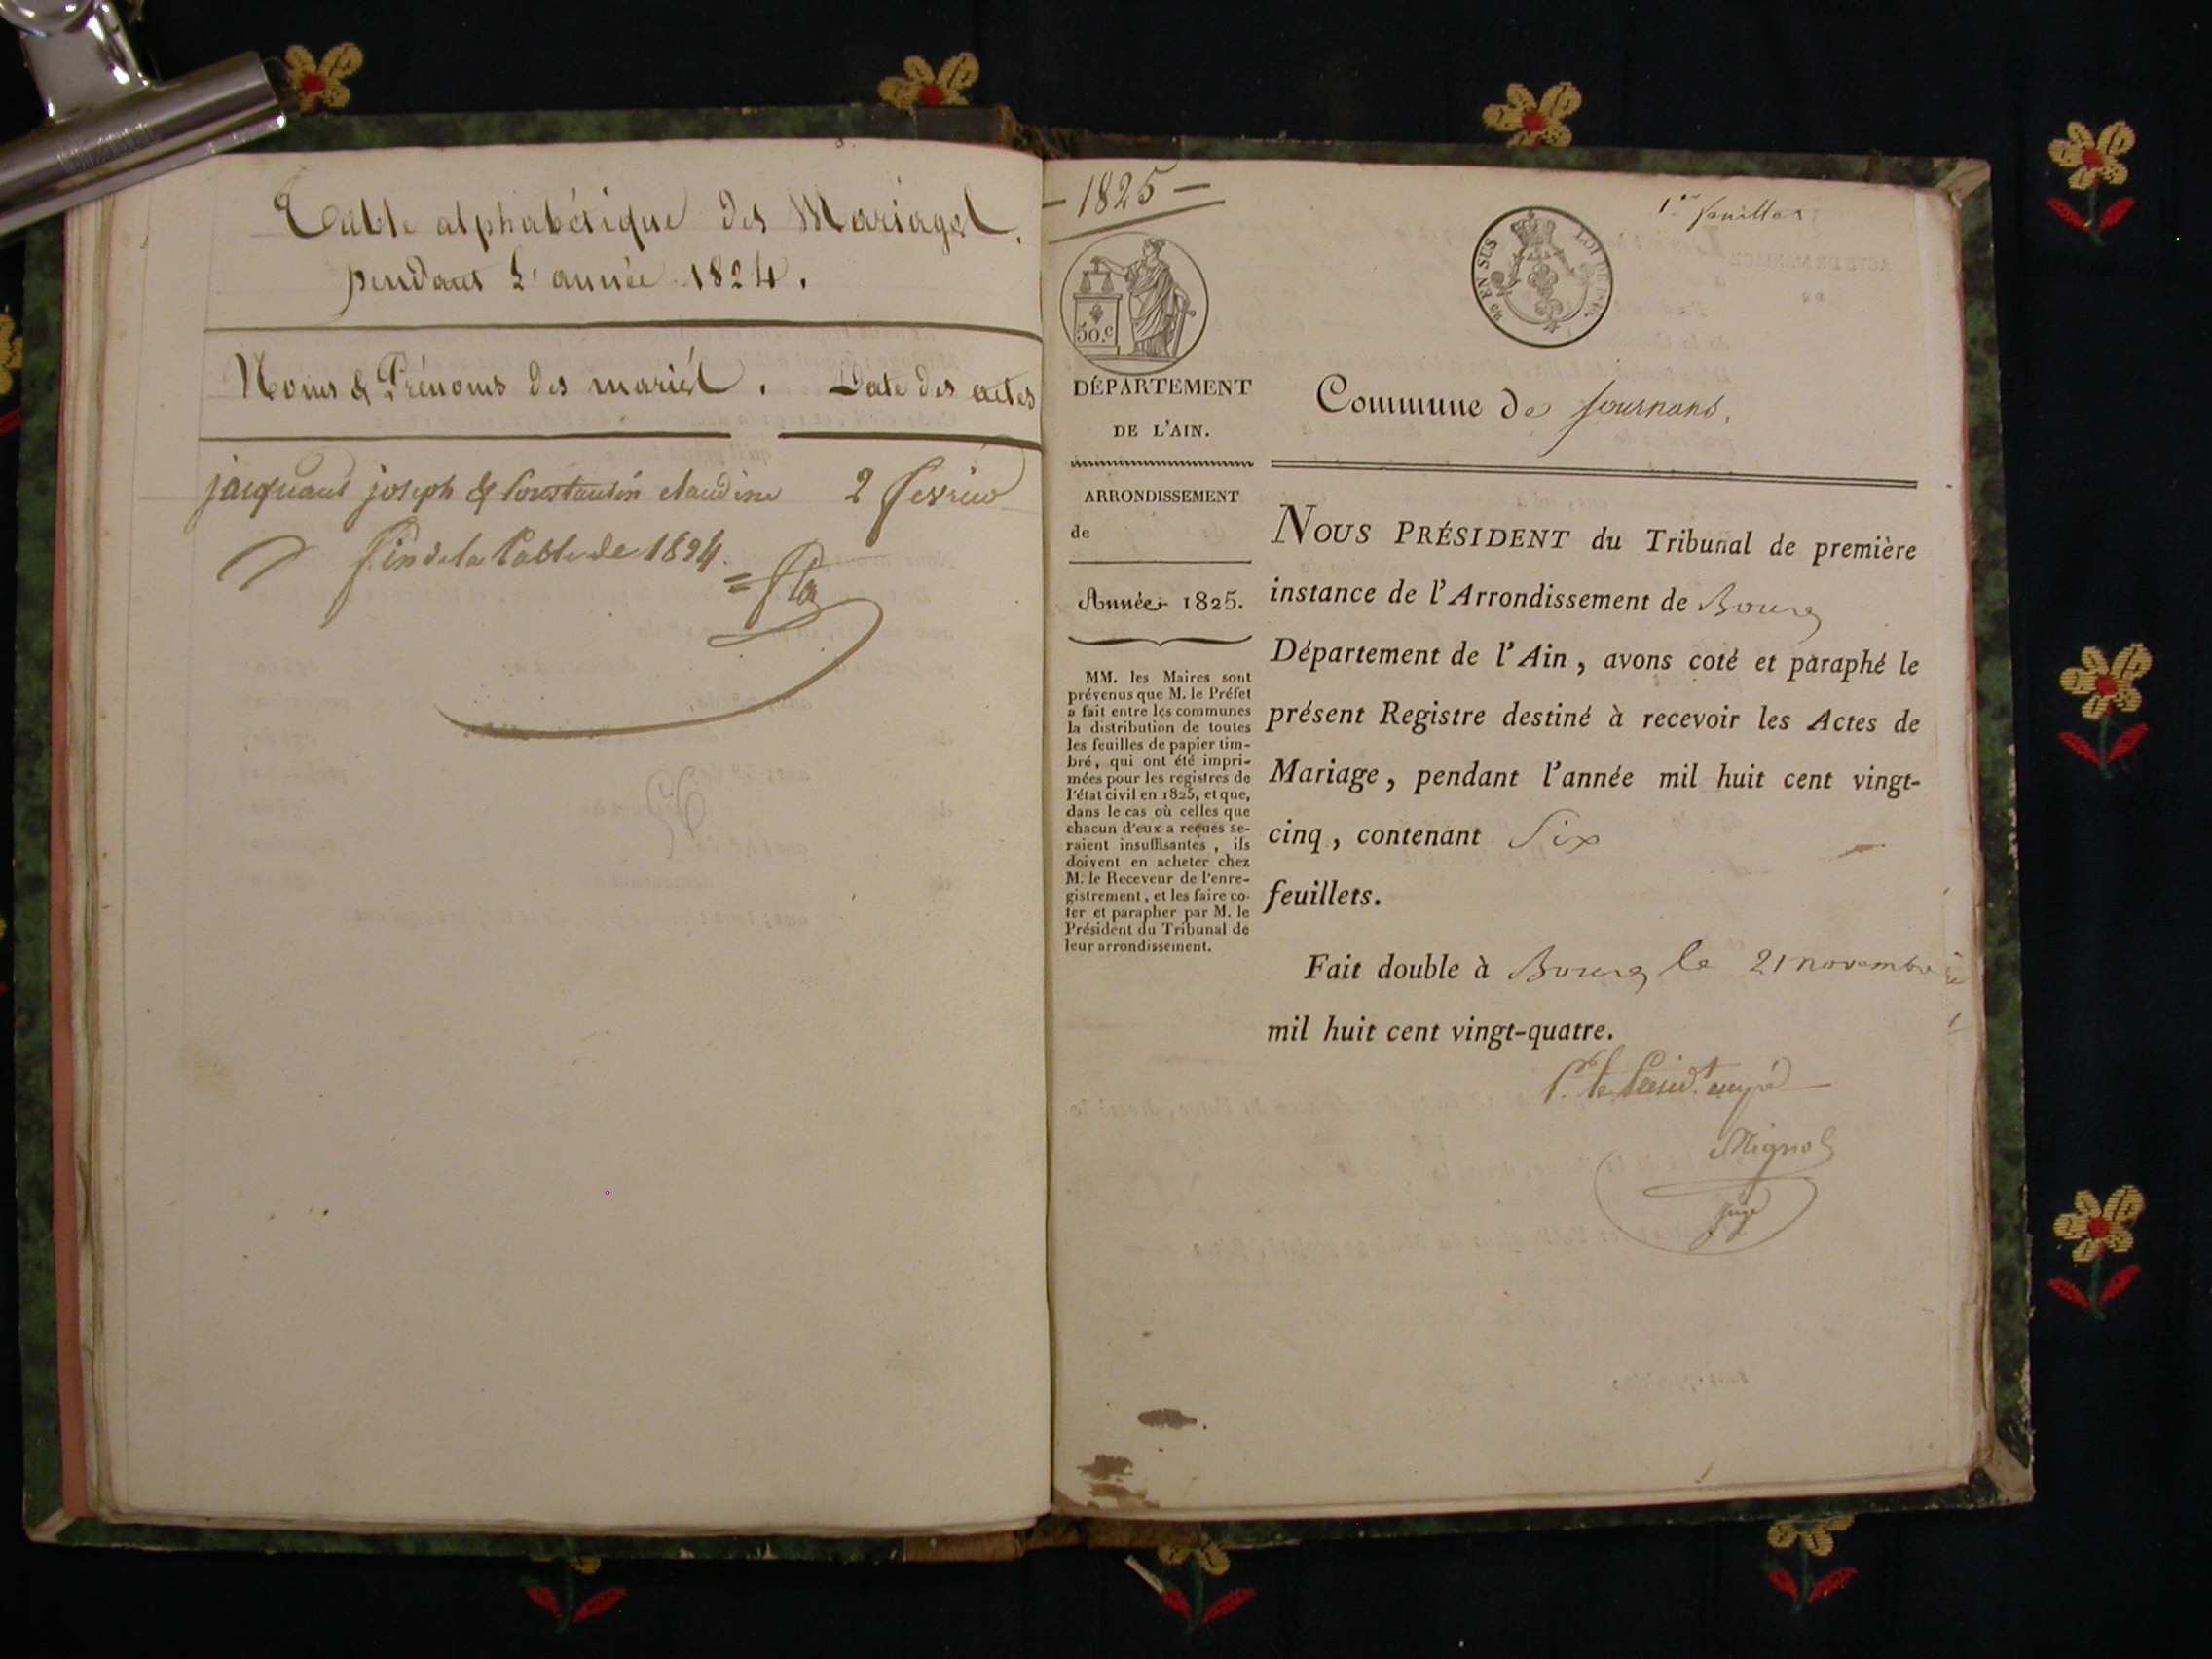 Table alphabétique des Mariages
pendant l'année 1824.
Noms & Prénoms des mariés. Date des actes
jacquand joseph & Constantin claudine 2 fevrier
fin de la table de 1824.
- 1825 -
1er feuillet
50.c
EN SUS LOI DE
DÉPARTEMENT
DE L'AIN.
Commune de Journans.
ARRONDISSEMENT
de
Année 1825.
MM. les Maires sont
prévenus que M. le Préfet
a fait entre les communes
la distribution de toutes
les feuilles de papier tim-
bré, qui ont été impri-
mées pour les registres de
l'état civil en 1825, et que,
dans le cas où celles que
chacun d'eux a reçues se-
raient insuffisantes, ils
doivent en acheter chez
M. le Receveur de l'enre-
gistrement, et les faire co-
ter et parapher par M. le
Président du Tribunal de
leur arrondissement.
NOUS PRÉSIDENT du Tribunal de première
instance de l'Arrondissement de Bourg
Département de l'Ain, avons coté et paraphé le
présent Registre destiné à recevoir les Actes de
Mariage, pendant l'année mil huit cent vingt-
cinq, contenant Six
feuillets.
Fait double à Bourg le 21 novembre
mil huit cent vingt-quatre.
Pr le Présidt empé
juge